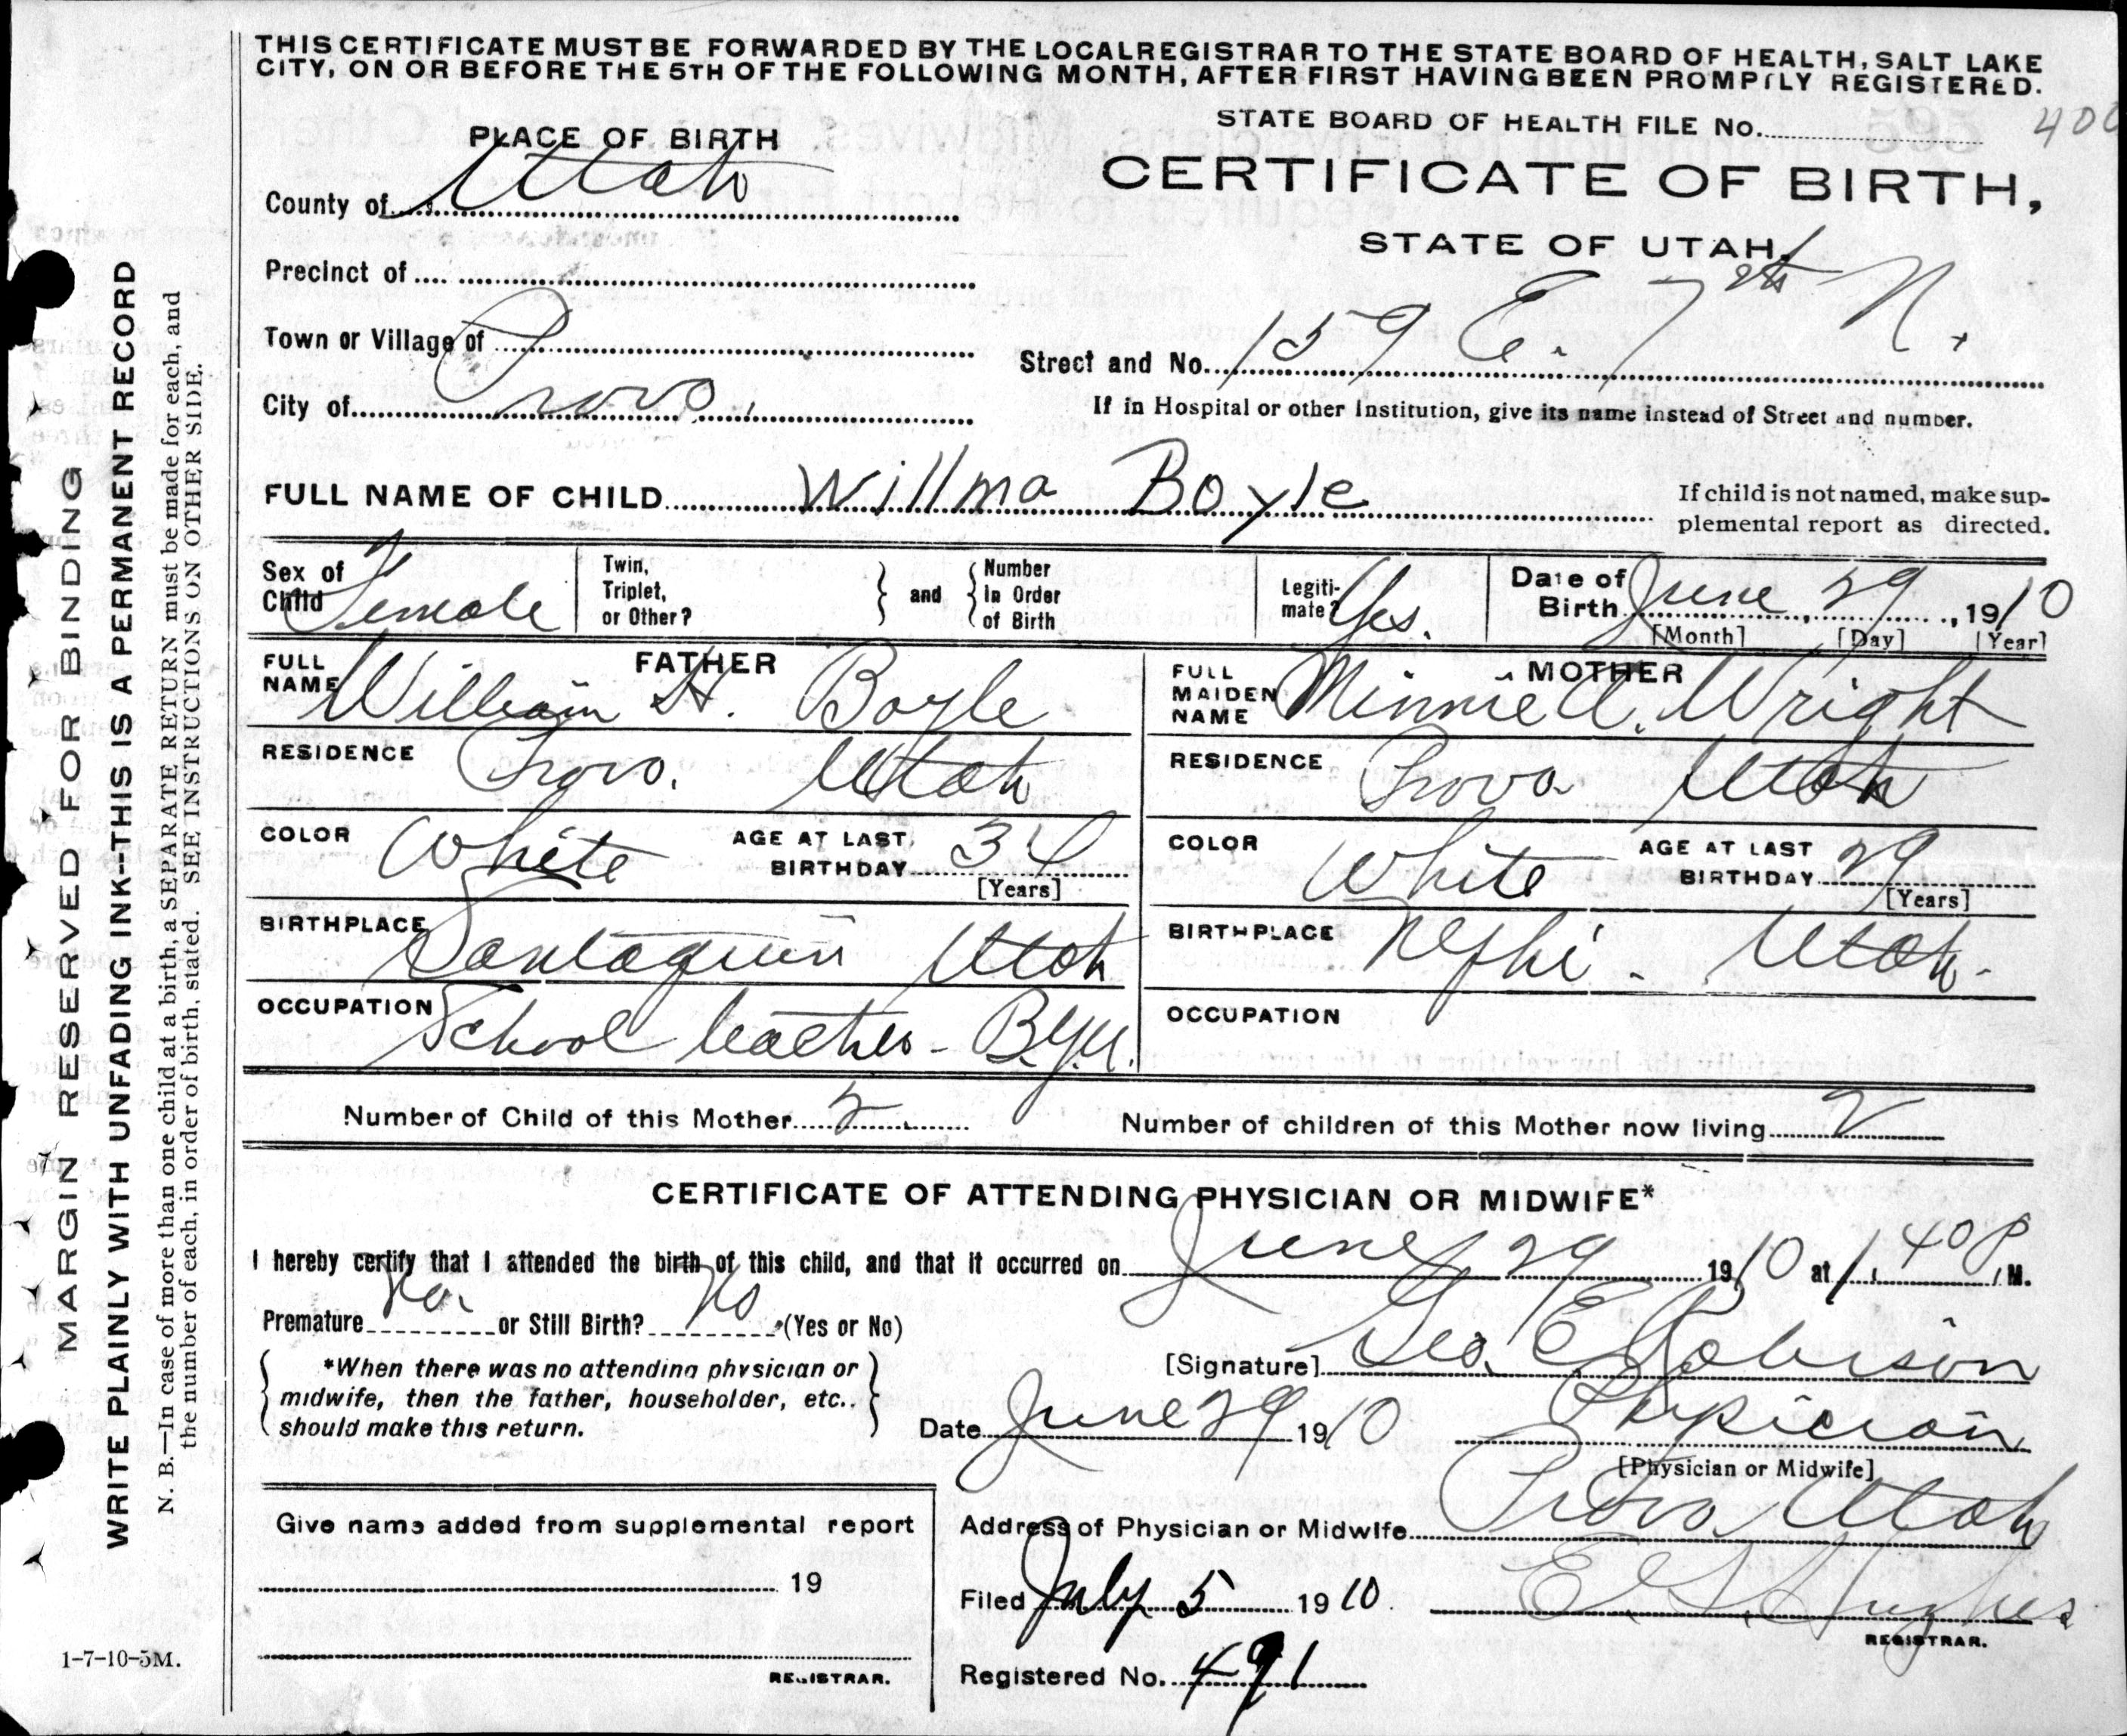 THIS CERTIFICATE MUST BE FORWARDED BY THE LOCAL REGISTRAR TO THE STATE BOARD OF HEALTH, SALT LAKE
CITY, ON OR BEFORE THE 5TH OF THE FOLLOWING MONTH, AFTER FIRST HAVING BEEN PROMPTLY REGISTERED.
STATE BOARD OF HEALTH FILE No. 400
PLACE OF BIRTH
CERTIFICATE OF BIRTH,
STATE OF UTAH.
County of Utah
Precinct of
Town or Village of
City of Provo.
Street and No. 159 E. 7th N.
If in Hospital or other Institution, give its name instead of Street and number.
FULL NAME OF CHILD Willma Boyle
If child is not named, make sup-
plemental report as directed.
Sex of Child Female
Twin, Triplet, or Other?
and
Number In Order of Birth
Legiti-mate? Yes.
Date of Birth June 29, 1910
[Month] [Day] [Year]
FATHER
FULL NAME William H. Boyle
RESIDENCE Provo. Utah
COLOR White AGE AT LAST BIRTHDAY 34
[Years]
BIRTHPLACE Santaquin Utah
OCCUPATION School teacher - B.Y.U.
MOTHER
FULL MAIDEN NAME Minnie A. Wright
RESIDENCE Provo Utah
COLOR White AGE AT LAST BIRTHDAY 29
[Years]
BIRTHPLACE Nephi - Utah.
OCCUPATION
Number of Child of this Mother 2 Number of children of this Mother now living 2
CERTIFICATE OF ATTENDING PHYSICIAN OR MIDWIFE*
I hereby certify that I attended the birth of this child, and that it occurred on June 29 1910 at 1.40 P. M.
Premature No. or Still Birth? No (Yes or No)
*When there was no attending physician or
midwife, then the father, householder, etc.
should make this return.
[Signature] Geo. E. Robison
Date June 29 1910 Physician
[Physician or Midwife]
Address of Physician or Midwife Provo Utah
Give name added from supplemental report
19
REGISTRAR.
Filed July 5 1910. E G Hughes
REGISTRAR.
Registered No. 491
MARGIN RESERVED FOR BINDING
WRITE PLAINLY WITH UNFADING INK--THIS IS A PERMANENT RECORD
N. B.—In case of more than one child at a birth, a SEPARATE RETURN must be made for each, and
the number of each, in order of birth, stated. SEE INSTRUCTIONS ON OTHER SIDE.
1-7-10-5M.